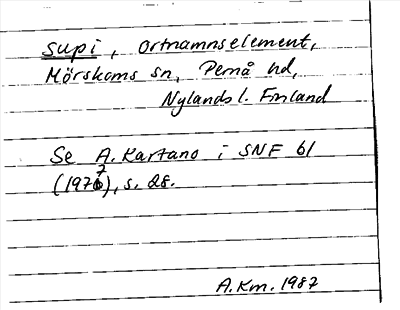 supi, ortnamnselement,
Mörskoms sn, Pernå hd,
Nylands l. Finland
Se A. Kartano i SNF 61
(1977), s. 28.
A.Km. 1987